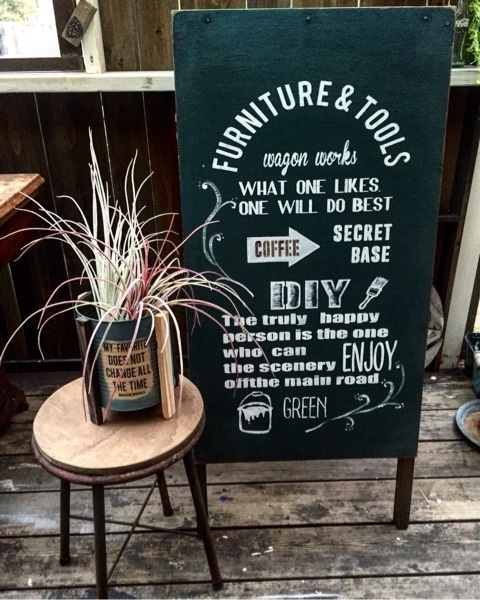 FURNITURE & TOOLS
wagon works
WHAT ONE LIKES,
ONE WILL DO BEST
COFFEE
SECRET
BASE
DIY
The truly happy
person is the one
who can
the scenery ENJOY
offthe main road
GREEN
MY FAVORITE
DOES NOT
CHANGE ALL
THE TIME